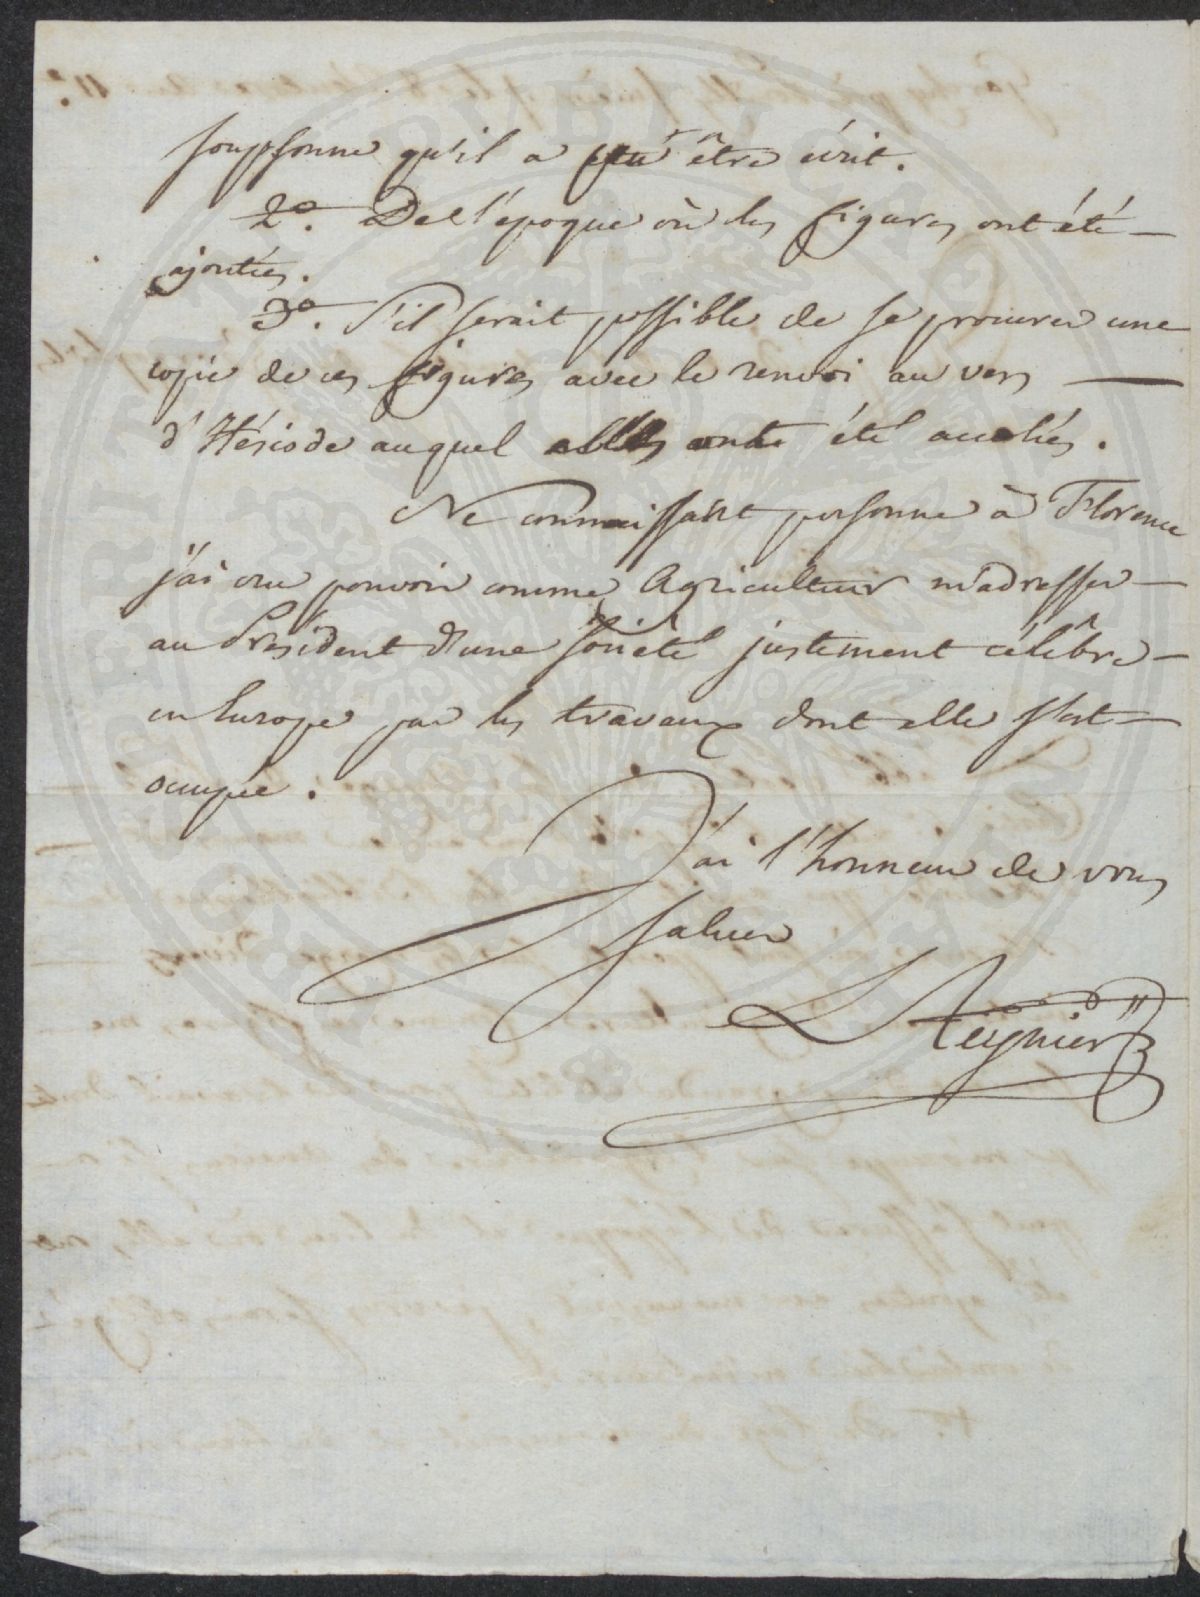 soupsonne qu'il a peu être écrit.
2º. De l'époque où les figures ont été
ajoutées.
3º. S'il serait possible de se procurer une
copie de ces figures avec le renvoi au vers
d'Hésiode auquel elles ont été accolées.
Ne connaissant personne à Florence
j'ai cru pouvoir comme Agriculteur m'adresser
au Président d'une Société justement célèbre
en Europe par les travaux dont elle s'est
occupée.
J'ai l'honneur de vous
saluer
L Reynier